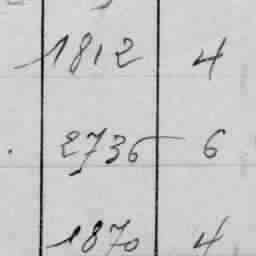 1812 4
2735 6
1870 4